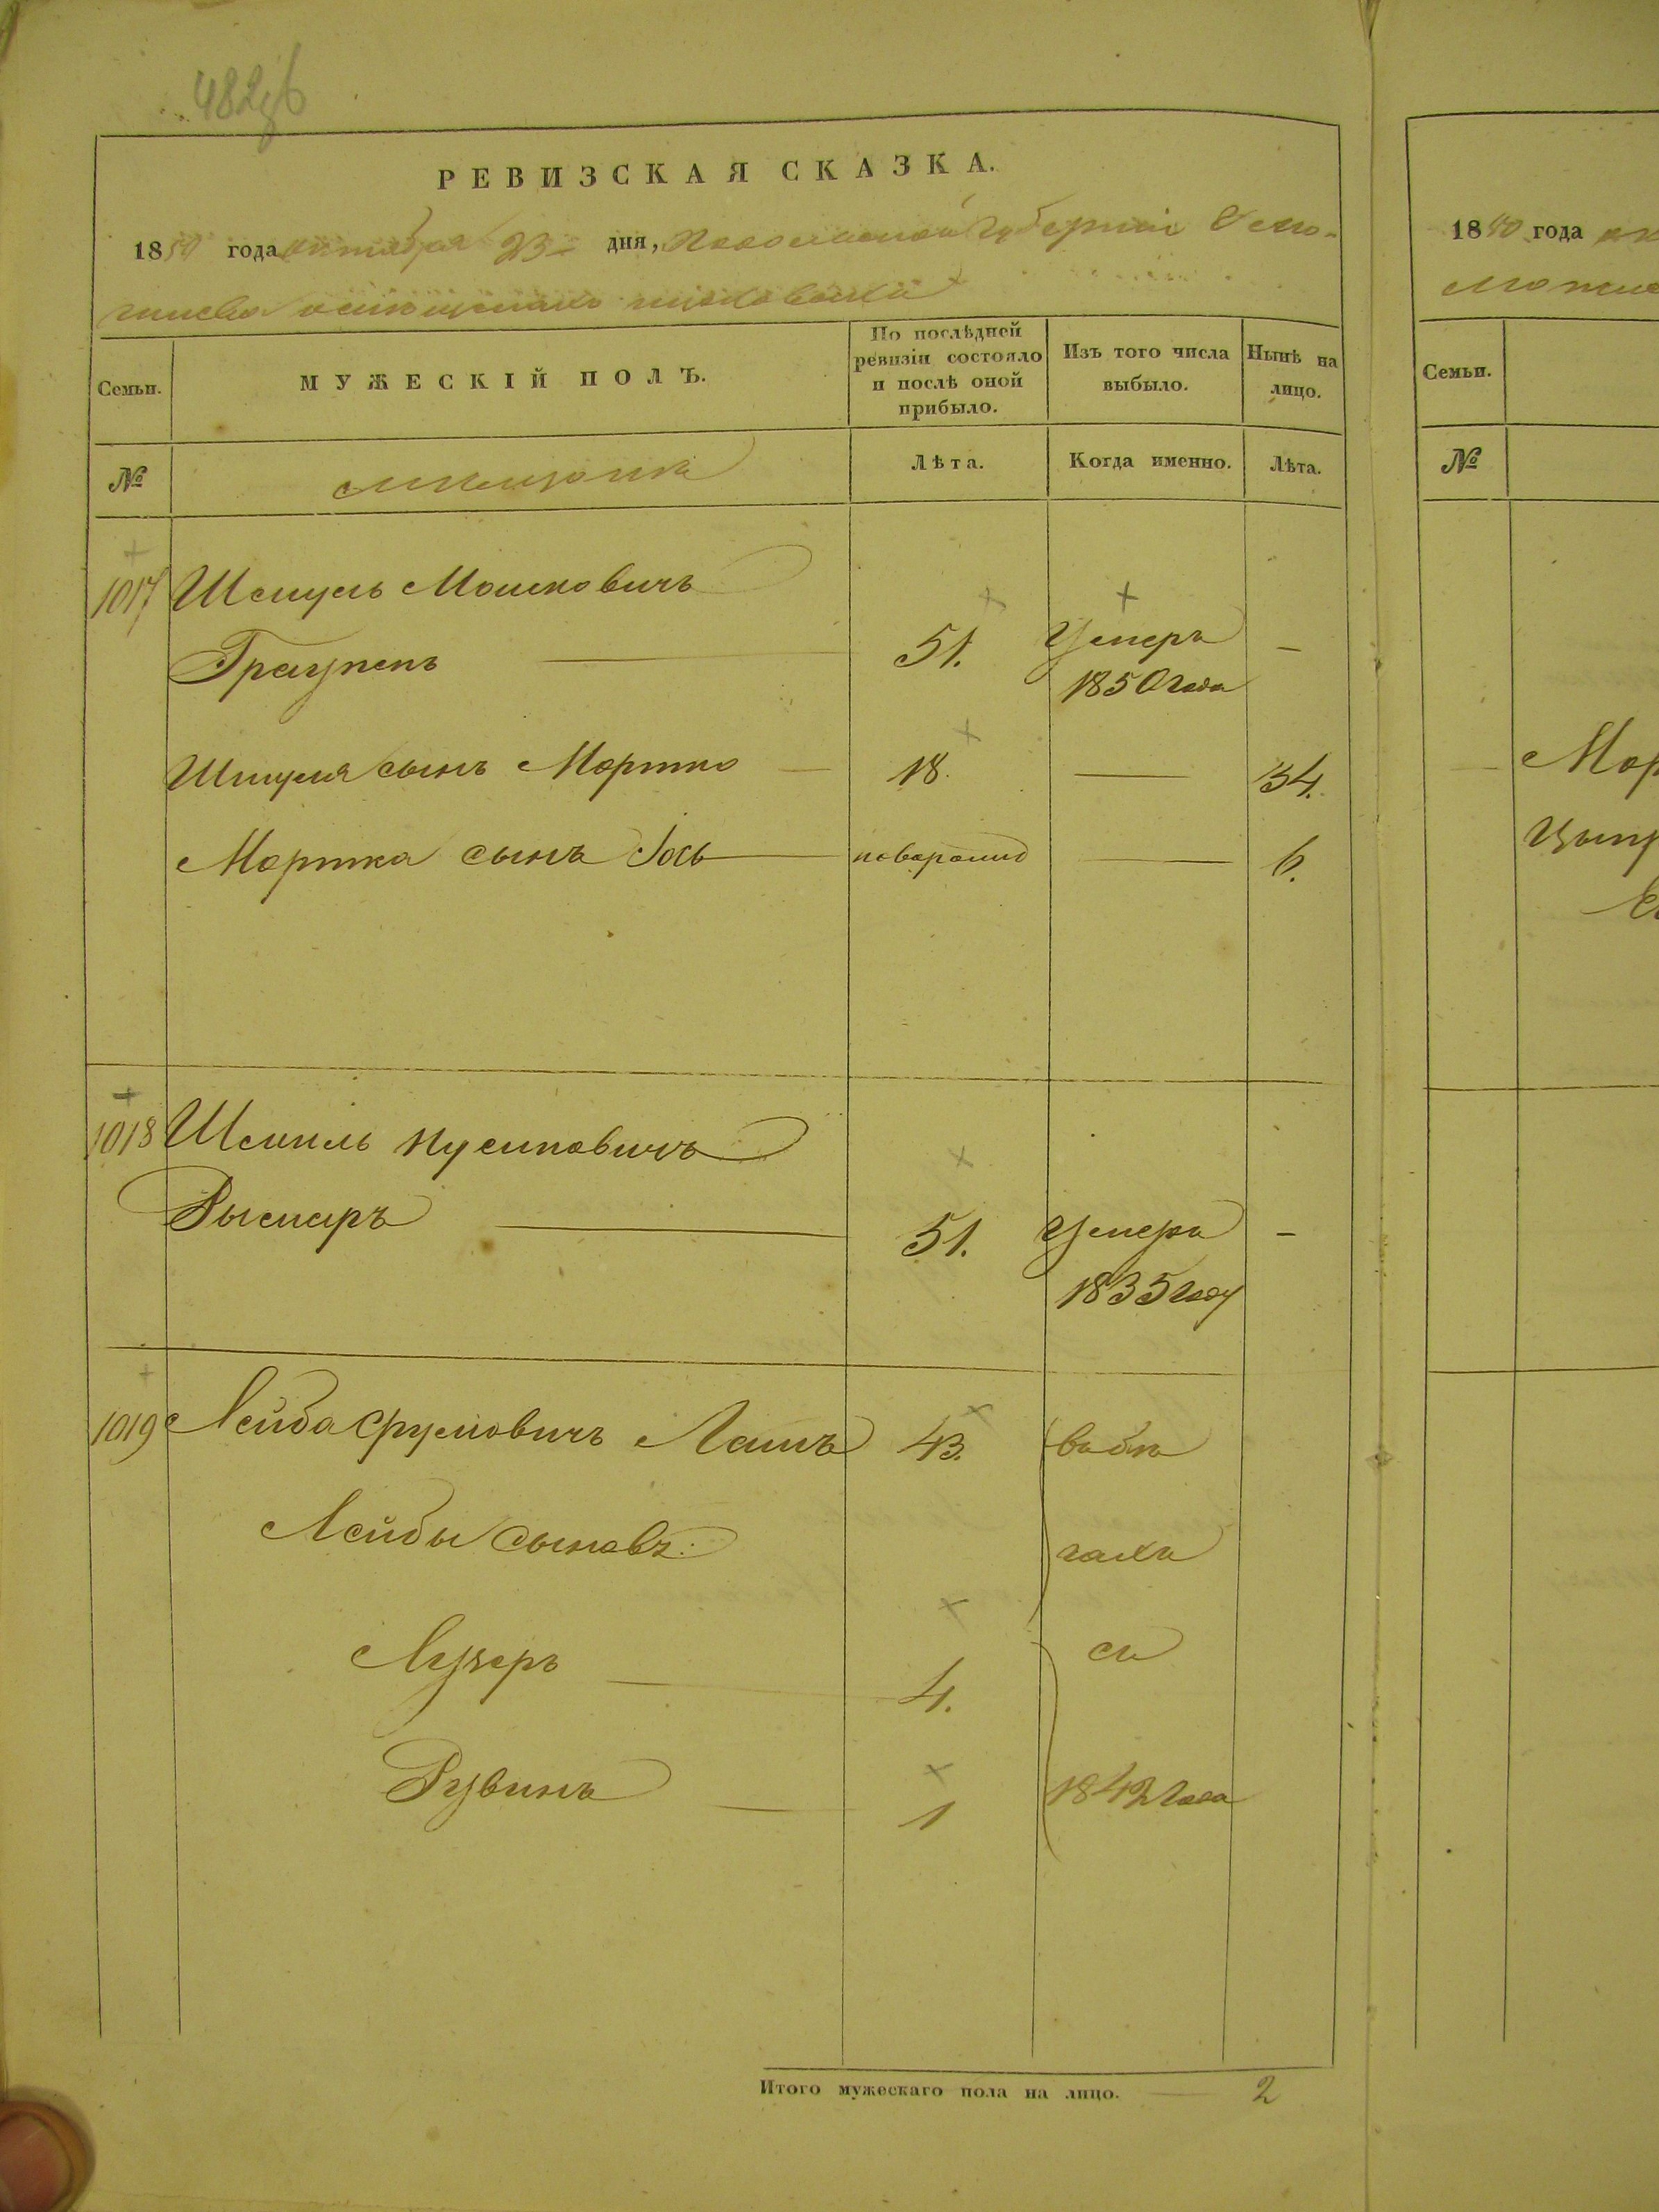 482 об
РЕВИЗСКАЯ СКАЗКА.
1850 года октября 23 дня, Подольской Губернии
Семьи.
МУЖЕСКІЙ ПОЛЪ.
По послѣдней ревизіи состояло и послѣ оной прибыло.
Изъ того числа выбыло.
Нынѣ на лицо.
№
Лѣта.
Когда именно.
Лѣта.
1017 Шмуль Мошковичъ
Граупенъ 51. Умеръ —
1850 года
Шмуля сынъ Мортко 18. 34.
Мортка сынъ Іось новорожд 6.
1018 Шмиль Нусиновичъ
51. Умеръ —
1835 году
1019 Лейба Сруловичъ 43. въ бѣ
Лейбы сыновья: гахъ
Лузеръ 4. съ
Рувинъ 1 1842 года
Итого мужескаго пола на лицо. 2
1850 года
Семьи.
№
Мор